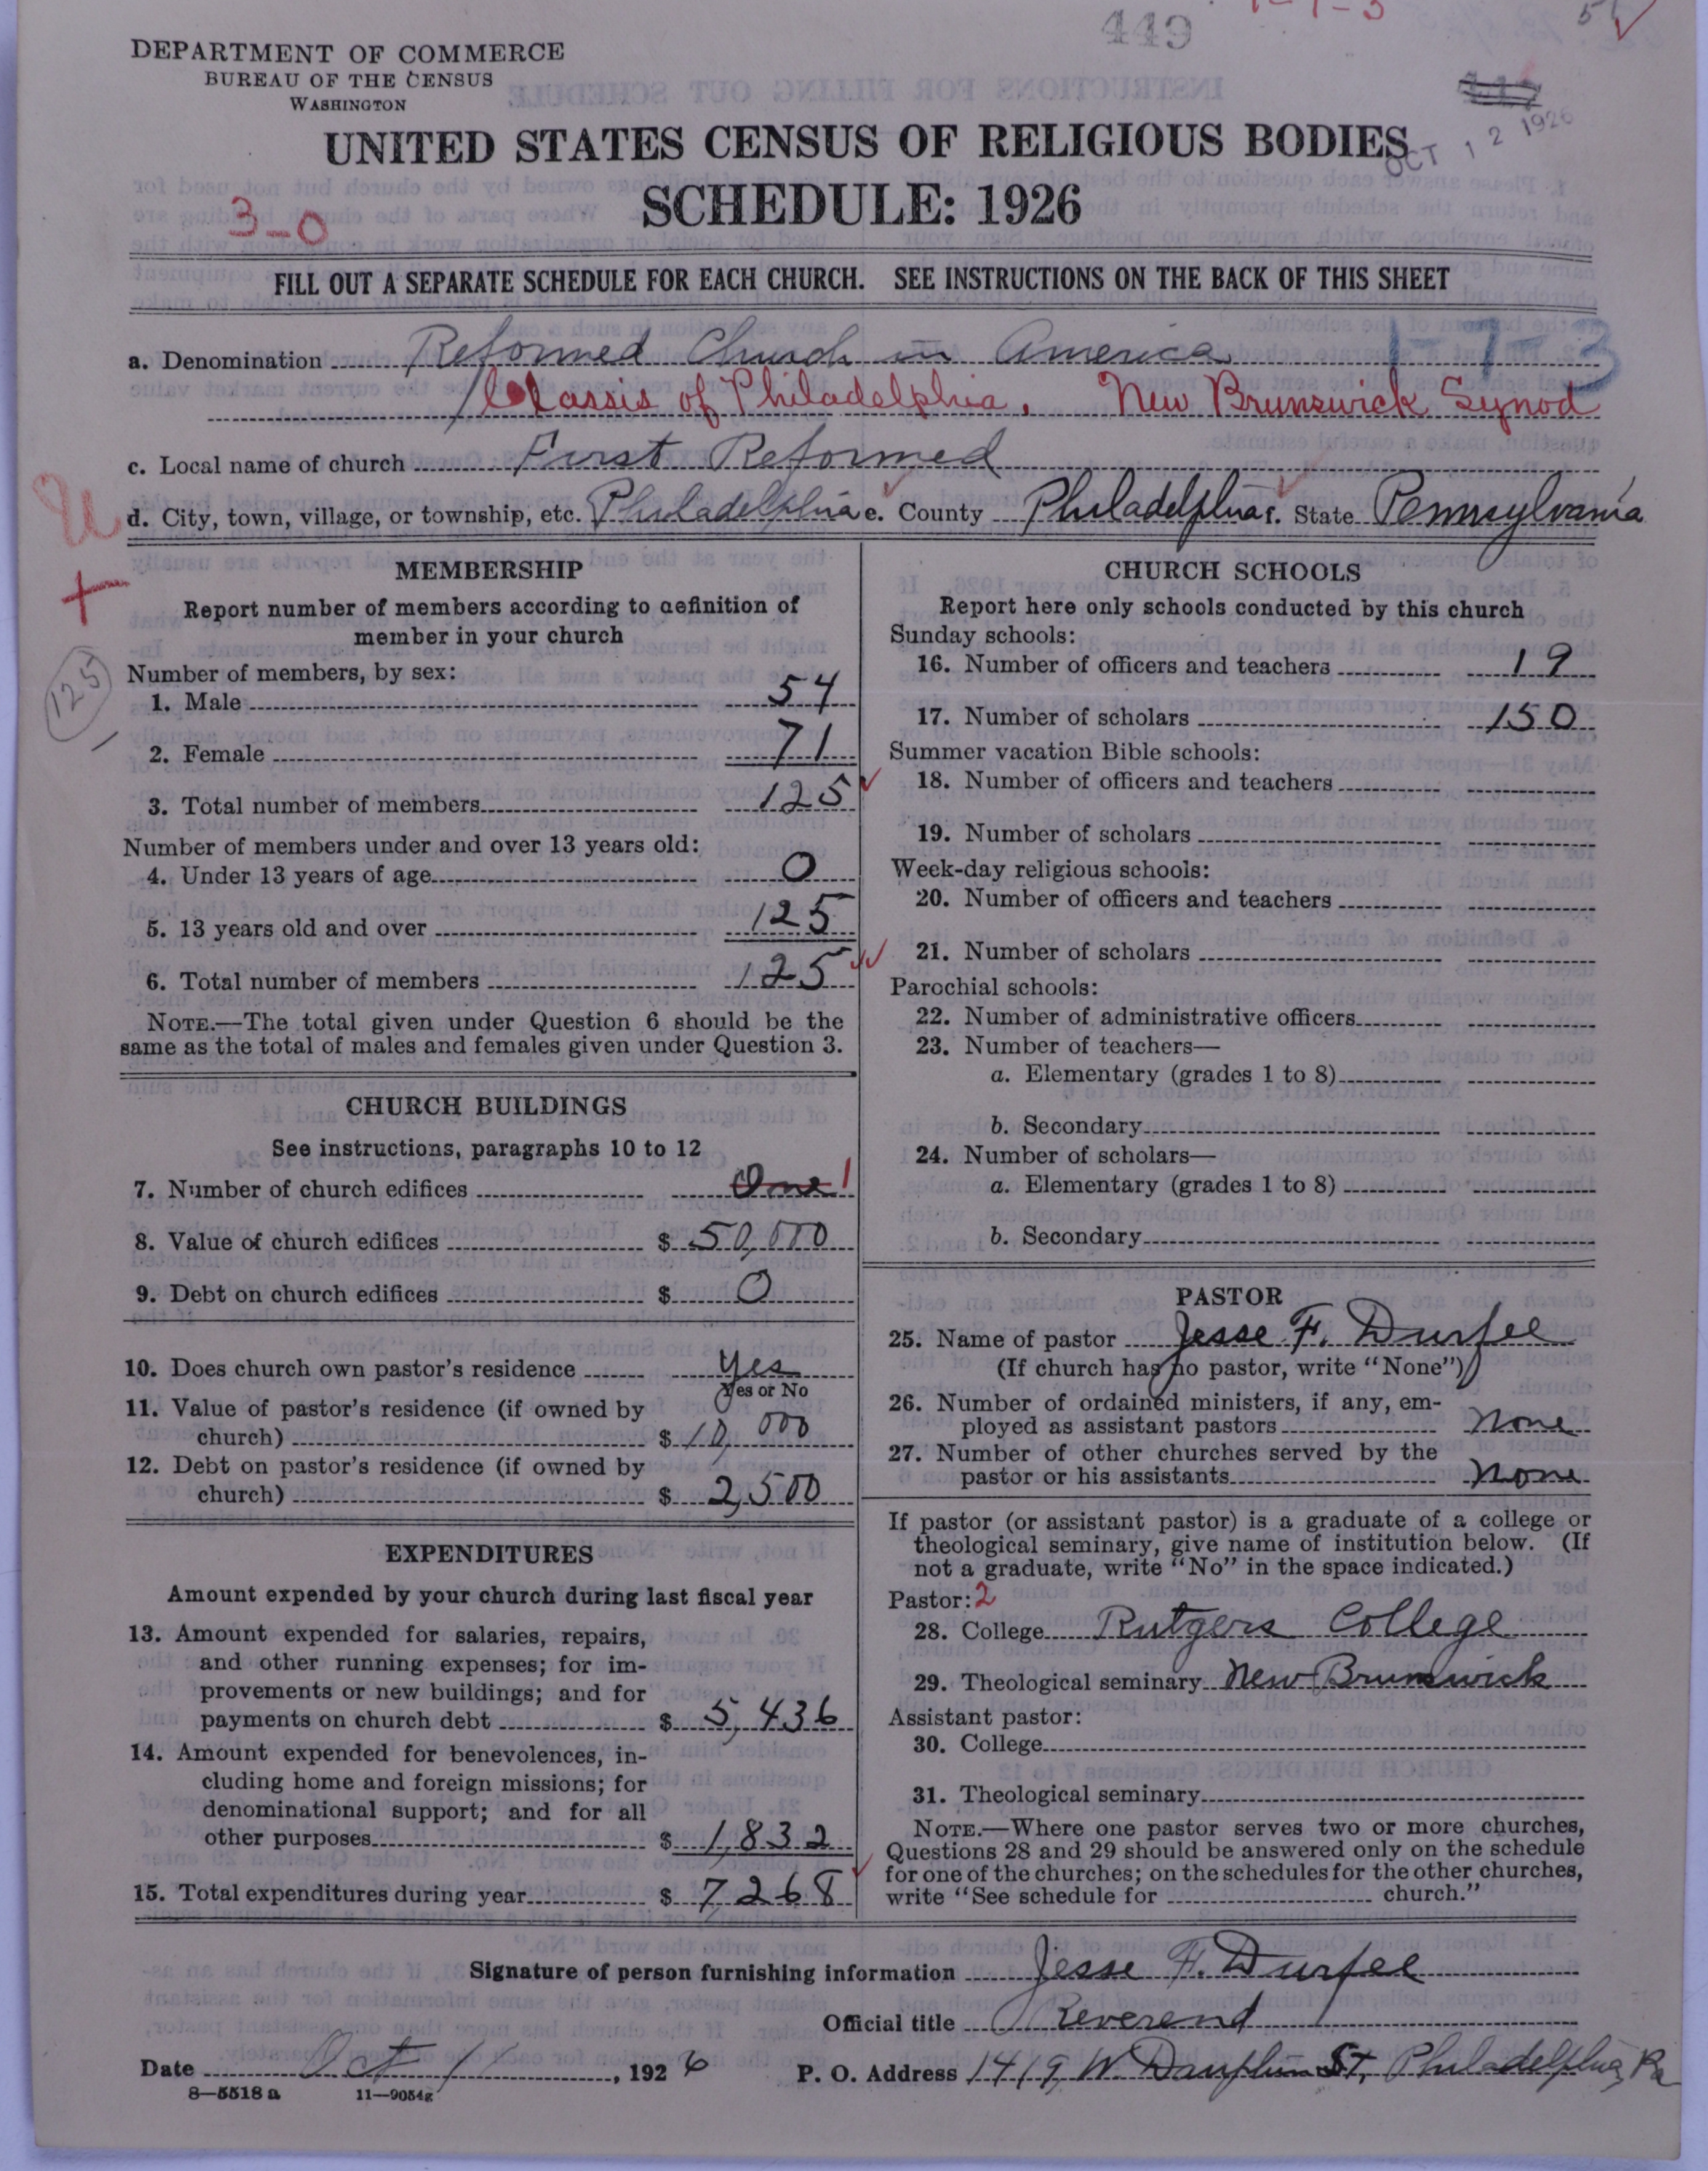 449
DEPARTMENT OF COMMERCE
BUREAU OF THE CENSUS
WASHINGTON
OCT 12 1926
UNITED STATES CENSUS OF RELIGIOUS BODIES
SCHEDULE: 1926
3-0
FILL OUT A SEPARATE SCHEDULE FOR EACH CHURCH. SEE INSTRUCTIONS ON THE BACK OF THIS SHEET
a. Denomination Reformed Church in America 1-7-3
Classis of Philadelphia, New Brunswick Synod
c. Local name of church First Reformed
d. City, town, village, or township, etc. Philadelphia e. County Philadelphia f. State Pennsylvania
MEMBERSHIP
Report number of members according to definition of
member in your church
Number of members, by sex:
125
1. Male 54
2. Female 71
3. Total number of members 125
Number of members under and over 13 years old:
4. Under 13 years of age 0
5. 13 years old and over 125
6. Total number of members 125
NOTE.—The total given under Question 6 should be the
same as the total of males and females given under Question 3.
CHURCH BUILDINGS
See instructions, paragraphs 10 to 12
7. Number of church edifices One 1
8. Value of church edifices $ 50,000
9. Debt on church edifices $ 0
10. Does church own pastor's residence Yes
Yes or No
11. Value of pastor's residence (if owned by
church) $ 10,000
12. Debt on pastor's residence (if owned by
church) $ 2,500
EXPENDITURES
Amount expended by your church during last fiscal year
13. Amount expended for salaries, repairs,
and other running expenses; for im-
provements or new buildings; and for
payments on church debt $ 5,436
14. Amount expended for benevolences, in-
cluding home and foreign missions; for
denominational support; and for all
other purposes $ 1,832
15. Total expenditures during year $ 7268
CHURCH SCHOOLS
Report here only schools conducted by this church
Sunday schools:
16. Number of officers and teachers 19
17. Number of scholars 150
Summer vacation Bible schools:
18. Number of officers and teachers
19. Number of scholars
Week-day religious schools:
20. Number of officers and teachers
21. Number of scholars
Parochial schools:
22. Number of administrative officers
23. Number of teachers—
a. Elementary (grades 1 to 8)
b. Secondary
24. Number of scholars—
a. Elementary (grades 1 to 8)
b. Secondary
PASTOR
25. Name of pastor Jesse F. Durfee
(If church has no pastor, write "None")
26. Number of ordained ministers, if any, em-
ployed as assistant pastors None
27. Number of other churches served by the
pastor or his assistants None
If pastor (or assistant pastor) is a graduate of a college or
theological seminary, give name of institution below. (If
not a graduate, write "No" in the space indicated.)
Pastor: 2
28. College Rutgers College
29. Theological seminary New Brunswick
Assistant pastor:
30. College
31. Theological seminary
NOTE.—Where one pastor serves two or more churches,
Questions 28 and 29 should be answered only on the schedule
for one of the churches; on the schedules for the other churches,
write "See schedule for church."
Signature of person furnishing information Jesse F. Durfee
Official title Reverend
Date Oct 1, 1926 P. O. Address 1419 W. Dauphin St, Philadelphia, Pa
8—5518 a 11—9054g